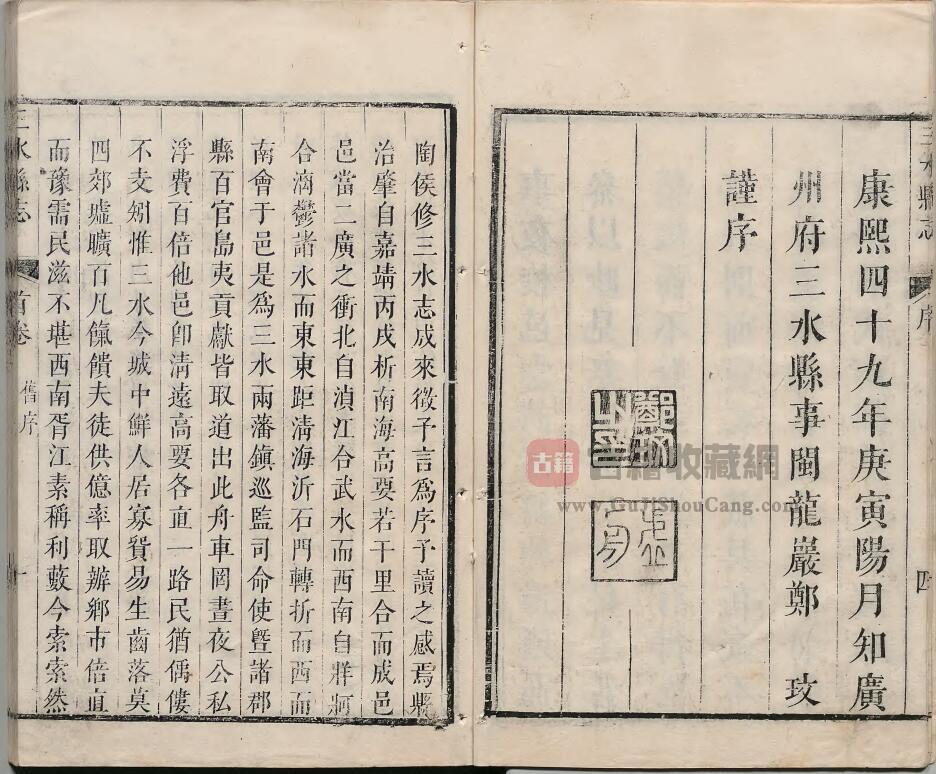 三水縣志
序
四
康熙四十九年庚寅陽月知廣
州府三水縣事閩龍巖鄭玫
謹序
古籍
古籍收藏網
www.GuJiShouCang.com
陶侯修三水志成來徵予言爲序予讀之感焉縣
治肇自嘉靖丙戌析南海高要若干里合而成邑
邑當二廣之衝北自湞江合武水而西南自牂牁
合漓鬱諸水而東東距淸海沂石門轉折而西而
南會于邑是爲三水兩藩鎮巡監司命使曁諸郡
縣百官島夷貢獻皆取道出此舟車罔晝夜公私
浮費百倍他邑卽淸遠高要各直一路民猶傴僂
不支矧惟三水今城中鮮人居寡貿易生齒落莫
四郊墟曠百凡餼饋夫徒供億率取辦鄉市倍直
而豫需民滋不堪西南胥江素稱利藪今索索然
三水縣志
首卷
舊序
一